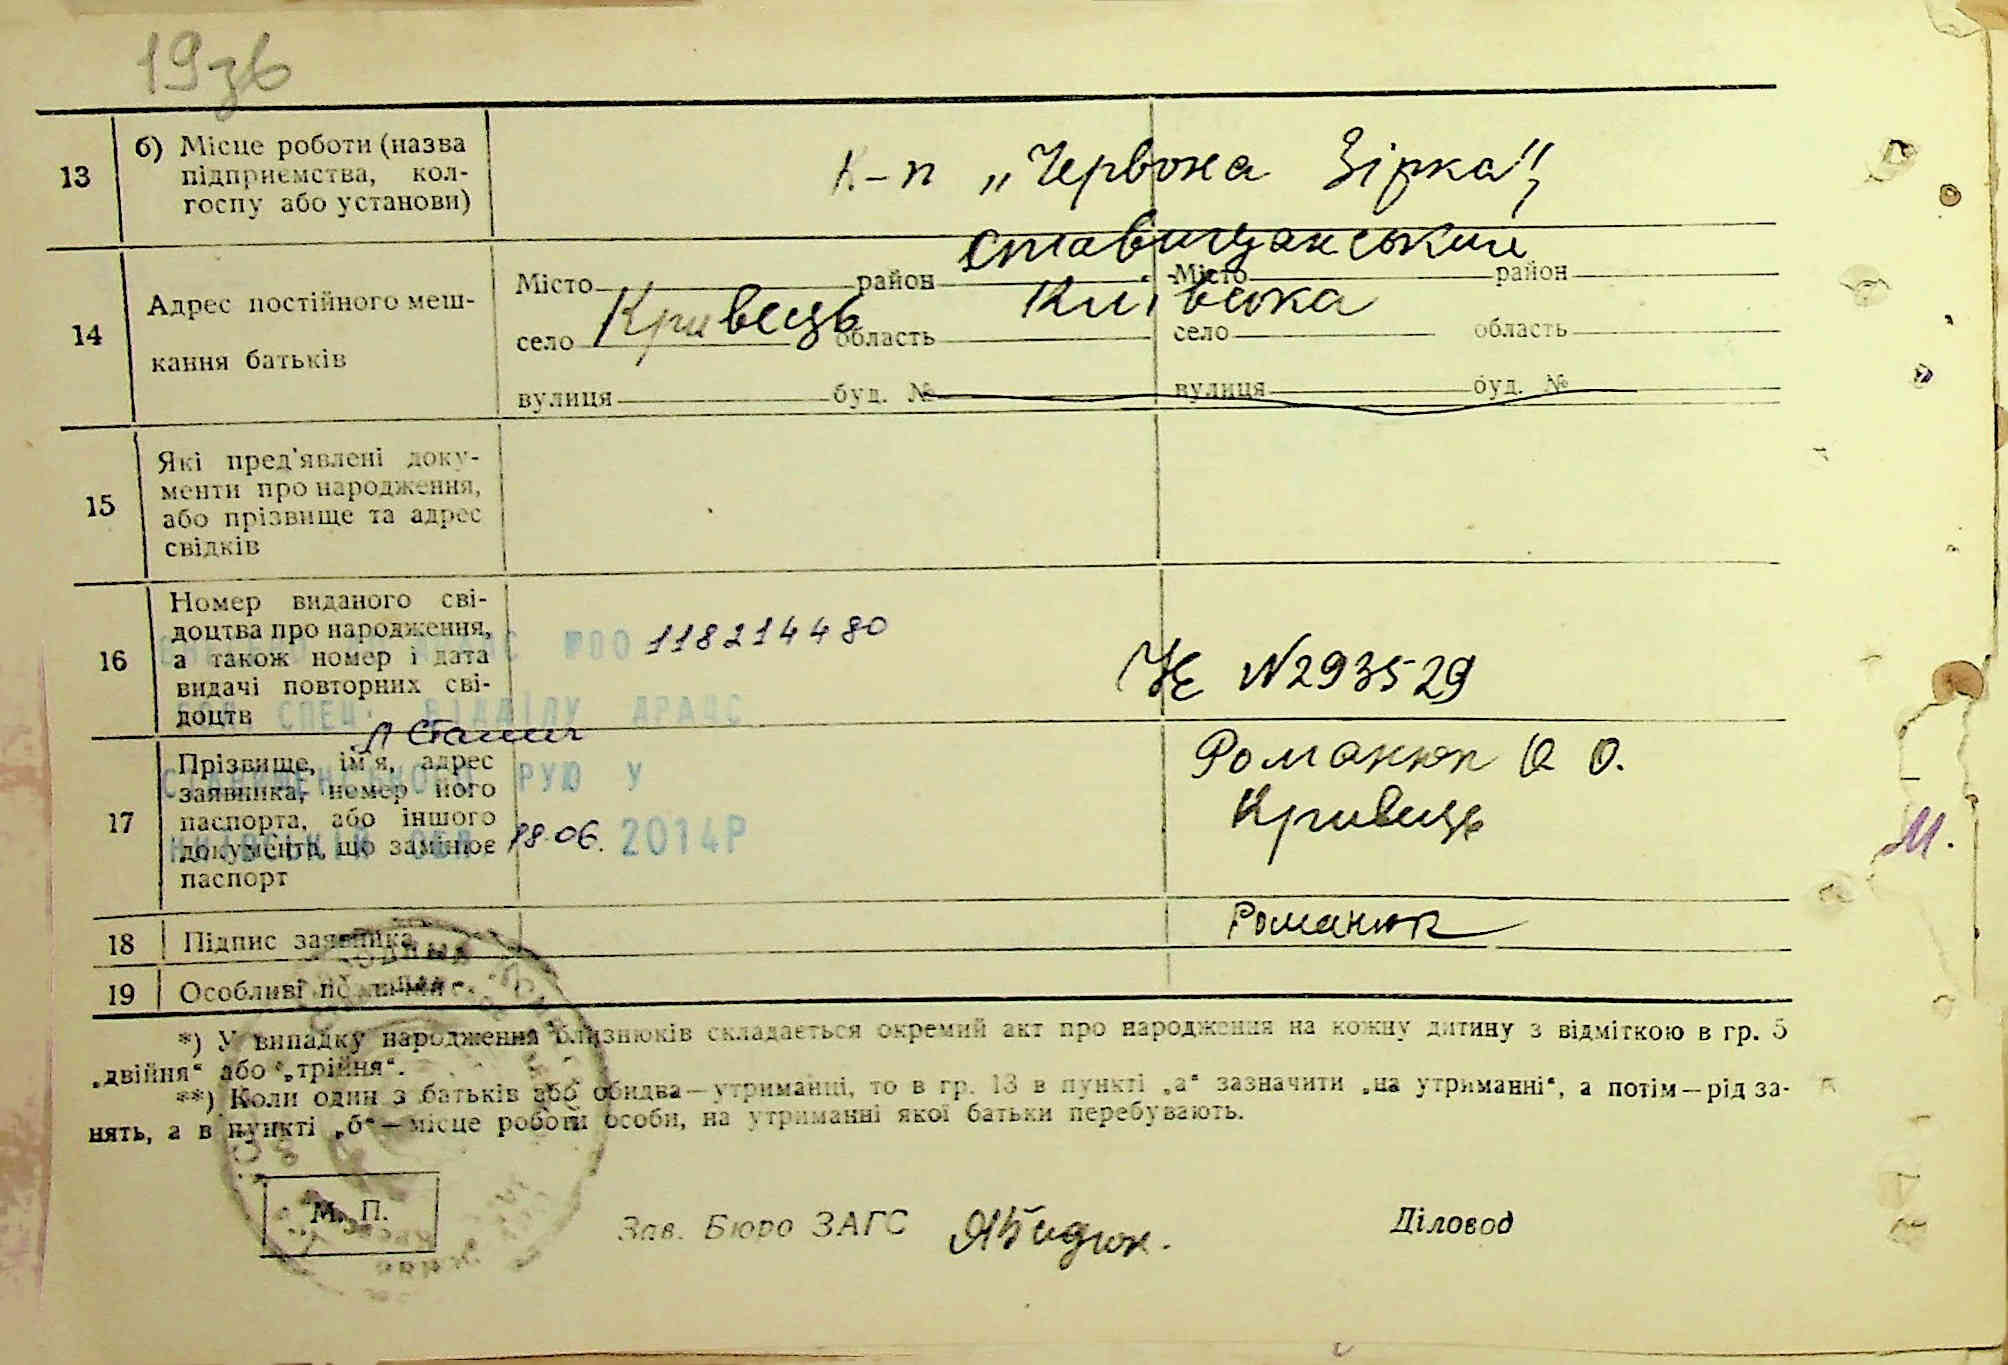 19зв
13
б) Місце роботи (назва
підприємства, кол-
госпу або установи)
К-п „Червона Зірка",
14
Адрес постійного меш-
кання батьків
Ставищанський
Місто район Місто район
Кривець Київська
село область село область
вулиця буд. № вулиця буд. №
15
Які пред'явлені доку-
менти про народження,
або прізвище та адрес
свідків
16
Номер виданого сві-
доцтва про народження,
а також номер і дата
видачі повторних сві-
доцтв
№00 118214480
СПЕЦ. ВІДДІЛУ ДРАЦС
РУЮ У
18.06. 2014Р
N293529
17
Прізвище, ім'я, адрес
заявника, номер його
паспорта, або іншого
документа, що замінює
паспорт
Романюк О.
Кривець
18 Підпис заявника
Романюк
19 Особливі
*) У випадку народження близнюків складається окремий акт про народження на кожну дитину з відміткою в гр. 5
„двійня“ або „трійня“.
**) Коли один з батьків або обидва—утриманці, то в гр. 13 в пункті „а“ зазначити „на утриманні“, а потім—рід за-
нять, а в пункті „б“—місце роботи особи, на утриманні якої батьки перебувають.
М. П.
Зав. Бюро ЗАГС
Діловод
М.